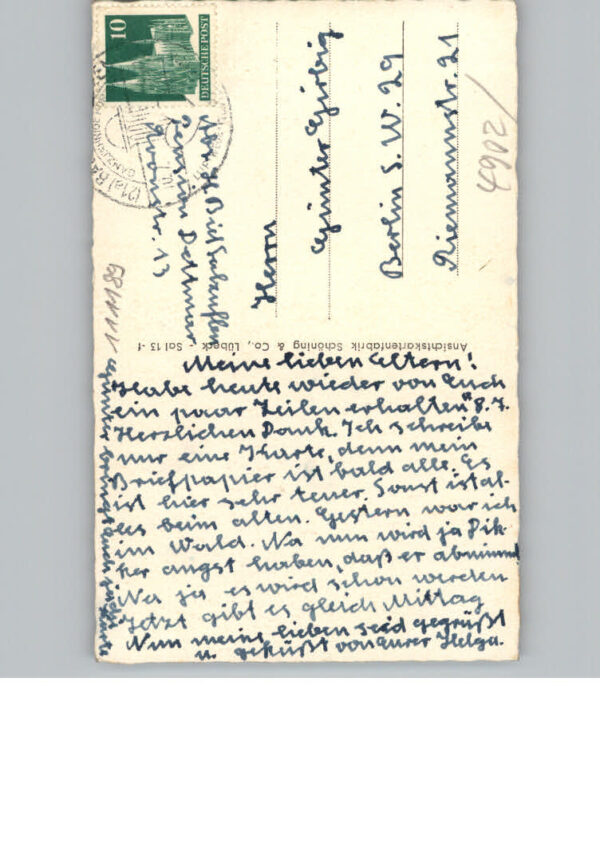 10
DEUTSCHE POST
Pension Dettmar
str. 13
Herrn
Günter Girbig
Berlin S.W. 29
Riemannstr. 21
4902/
Ansichtskartenfabrik Schöning & Co., Lübeck - Sal 13 -f
Meine lieben Eltern!
Habe heute wieder von Euch
ein paar Zeilen erhalten 8.7.
Herzlichen Dank. Ich schreibe
nur eine Karte, denn mein
Briefpapier ist bald alle. Es
ist hier sehr teuer. Sonst ist al-
les beim alten. Gestern war ich
im Wald. Na nun wird ja
angst haben, daß er abnimmt
Na ja es wird schon werden
Jetzt gibt es gleich Mittag
Nun meine lieben seid gegrüßt
u. geküßt von Eurer Helga.
Günter bringt Euch Karte